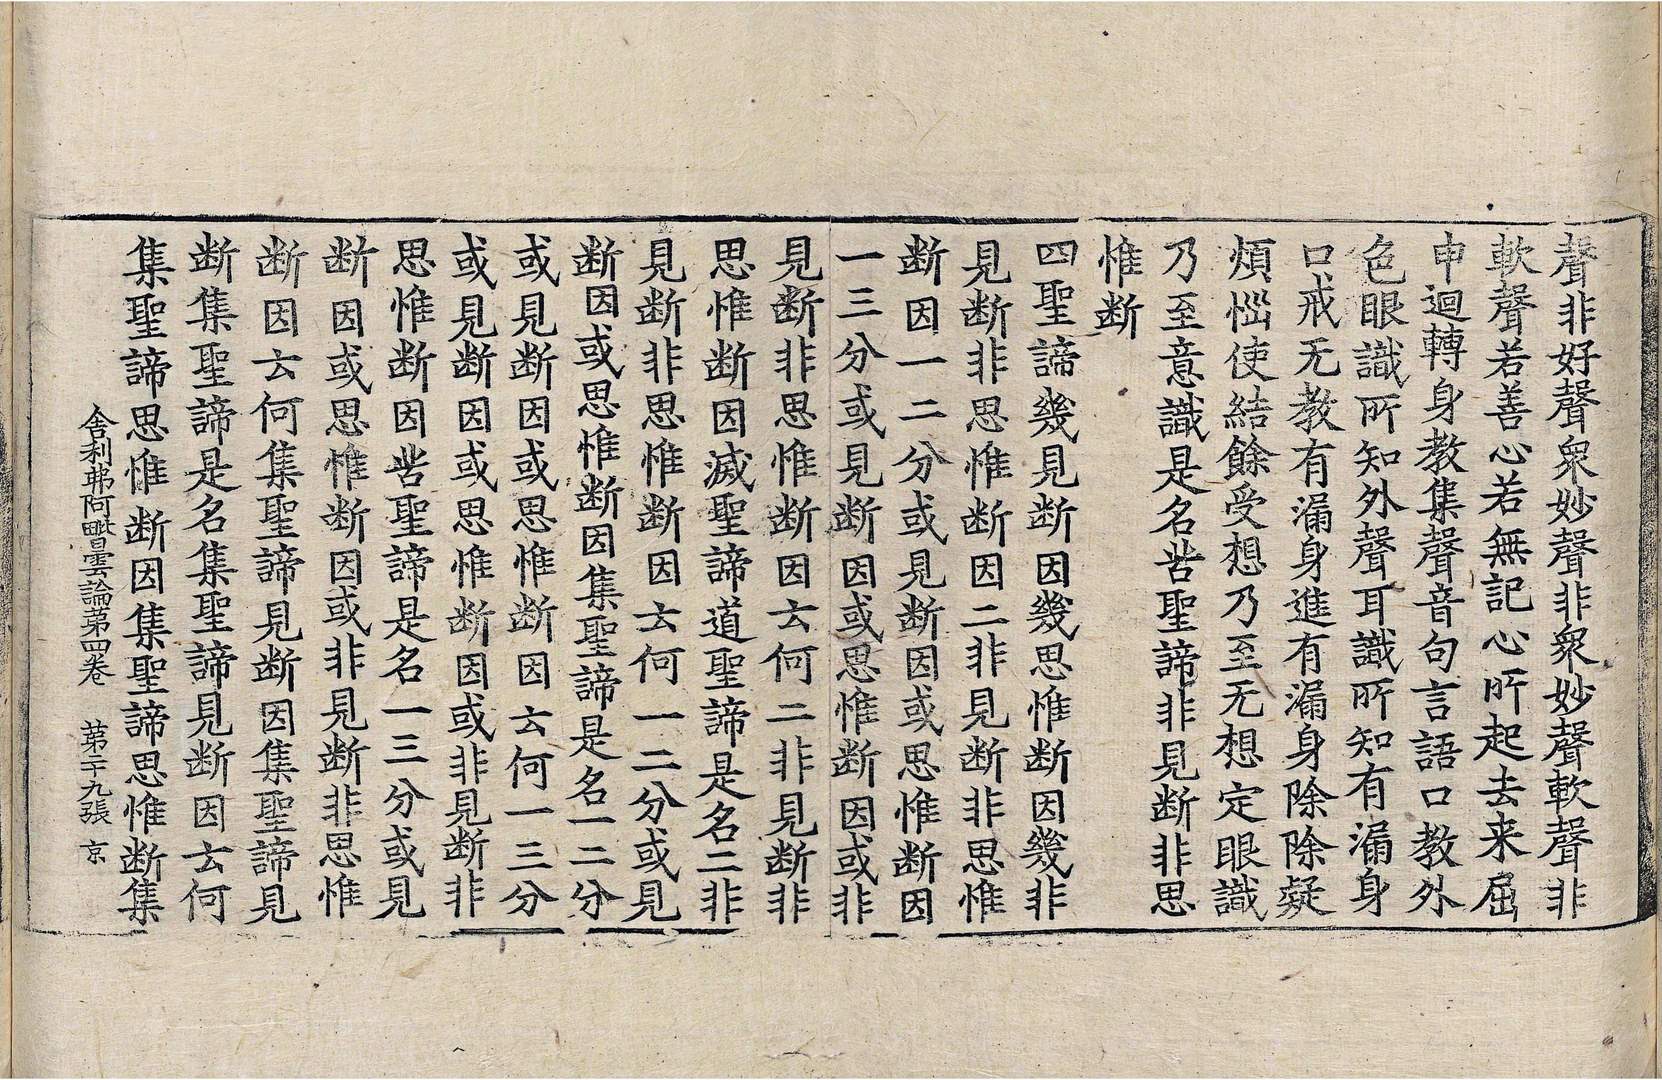 聲非好聲衆妙聲非衆妙聲軟聲非
軟聲若善心若無記心所起去来屈
申迴轉身教集聲音句言語口教外
色眼識所知外聲耳識所知有漏身
口戒无教有漏身進有漏身除除癡
煩惱使結餘受想乃至无想定眼識
乃至意識是名苦聖諦非見断非思
惟断
四聖諦幾見断因幾思惟断因幾非
見断非思惟断因二非見断非思惟
断因一二分或見断因或思惟断因
一三分或見断因或思惟断因或非
見断非思惟断因云何二非見断非
思惟断因滅聖諦道聖諦是名二非
見断非思惟断因云何一二分或見
断因或思惟断因集聖諦是名一二分
或見断因或思惟断因云何一三分
或見断因或思惟断因或非見断非
思惟断因苦聖諦是名一三分或見
断因或思惟断因或非見断非思惟
断因云何集聖諦見断因集聖諦見
断集聖諦是名集聖諦見断因云何
集聖諦思惟断因集聖諦思惟断集
舎利弗阿毗曇論苐四卷 苐二十九張 京